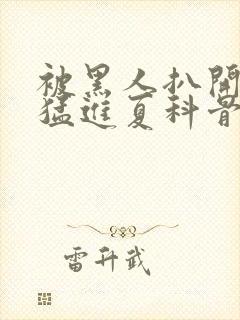 被黑人扒開
猛進夏科骨
雷升武